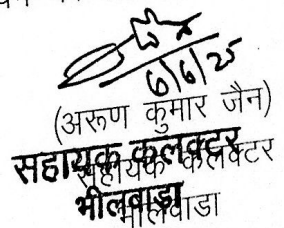 6/6/25
(अरूण कुमार जैन)
सहायक कलक्टर
सहायक कलक्टर
भीलवाडा
भीलवाडा